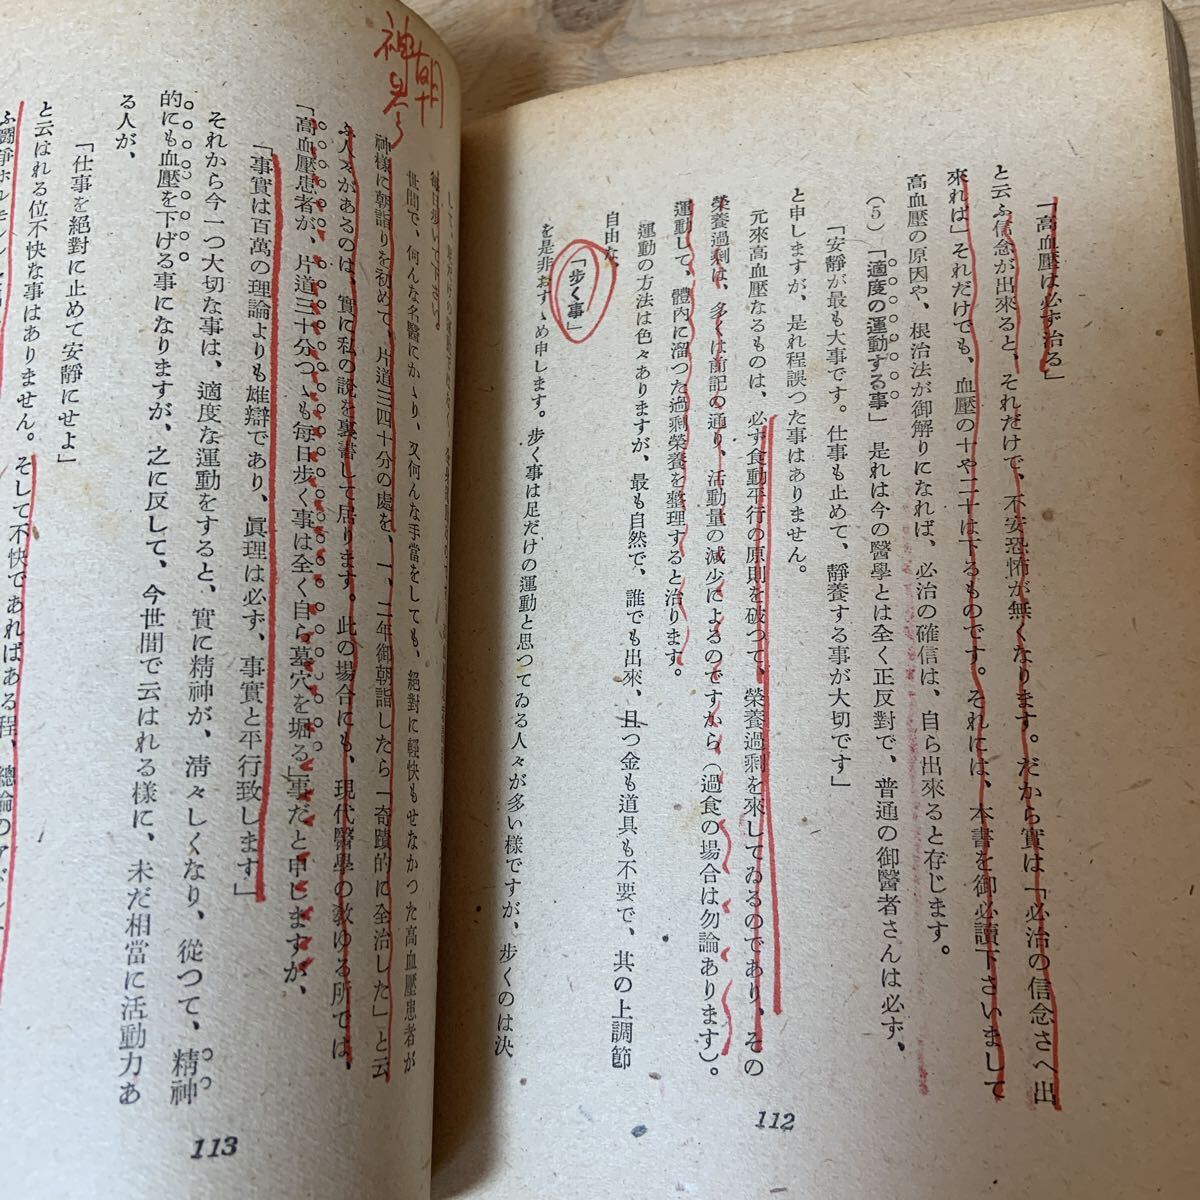 「高血壓は必ず治る」
と云ふ信念が出來ると、それだけで、不安恐怖が無くなります。だから實は「必治の信念さへ出
來れば」それだけでも、血壓の十や二十は下るものです。それには、本書を御必讀下さいまして
高血壓の原因や、根治法が御解りになれば、必治の確信は、自ら出來ると存じます。
(5)「適度の運動する事」 是れは今の醫學とは全く正反對で、普通の御醫者さんは必ず、
「安靜が最も大事です。仕事も止めて、靜養する事が大切です」
と申しますが、是れ程誤つた事はありません。
元來高血壓なるものは、必ず食動平行の原則を破つて、榮養過剩を來してゐるのであり、その
榮養過剩は、多くは前記の通り、活動量の減少によるのですから(過食の場合は勿論あります)。
運動して、體內に溜つた過剩榮養を整理すると治ります。
運動の方法は色々ありますが、最も自然で、誰でも出來、且つ金も道具も不要で、其の上調節
自由な、
「步く事」
を是非おすゝめ申します。步く事は足だけの運動と思つてゐる人々が多い樣ですが、步くのは決
112
朝
神
每日步いて下さい。
世間で、何んな名醫にかゝり、又何んな手當をしても、絕對に輕快もせなかつた高血壓患者が
神樣に朝詣りを初めて、片道三四十分の處を、一、二年御朝詣したら「奇蹟的に全治した」と云
ふ人々があるのは、實に私の說を裏書して居ります。此の場合にも、現代醫學の敎ゆる所では、
「高血壓患者が、片道三十分づゝも每日步く事は全く自ら墓穴を堀る」事だと申しますが、
「事實は百萬の理論よりも雄辯であり、眞理は必ず、事實と平行致します」
それから今一つ大切な事は、適度な運動をすると、實に精神が、淸々しくなり、從つて、精神
的にも血壓を下げる事になりますが、之に反して、今世間で云はれる樣に、未だ相當に活動力あ
る人が、
「仕事を絕對に止めて安靜にせよ」
と云はれる位不快な事はありません。そして不快であればある程、總論の
113